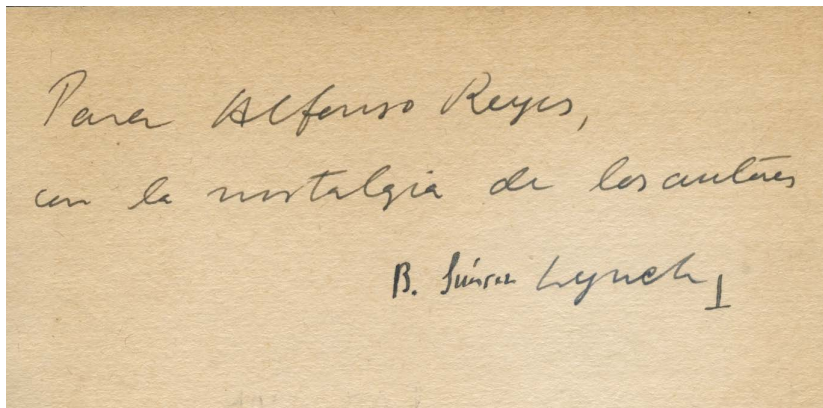 Para Alfonso Reyes,
con la nostalgia de los autores
B. Suárez Lynch